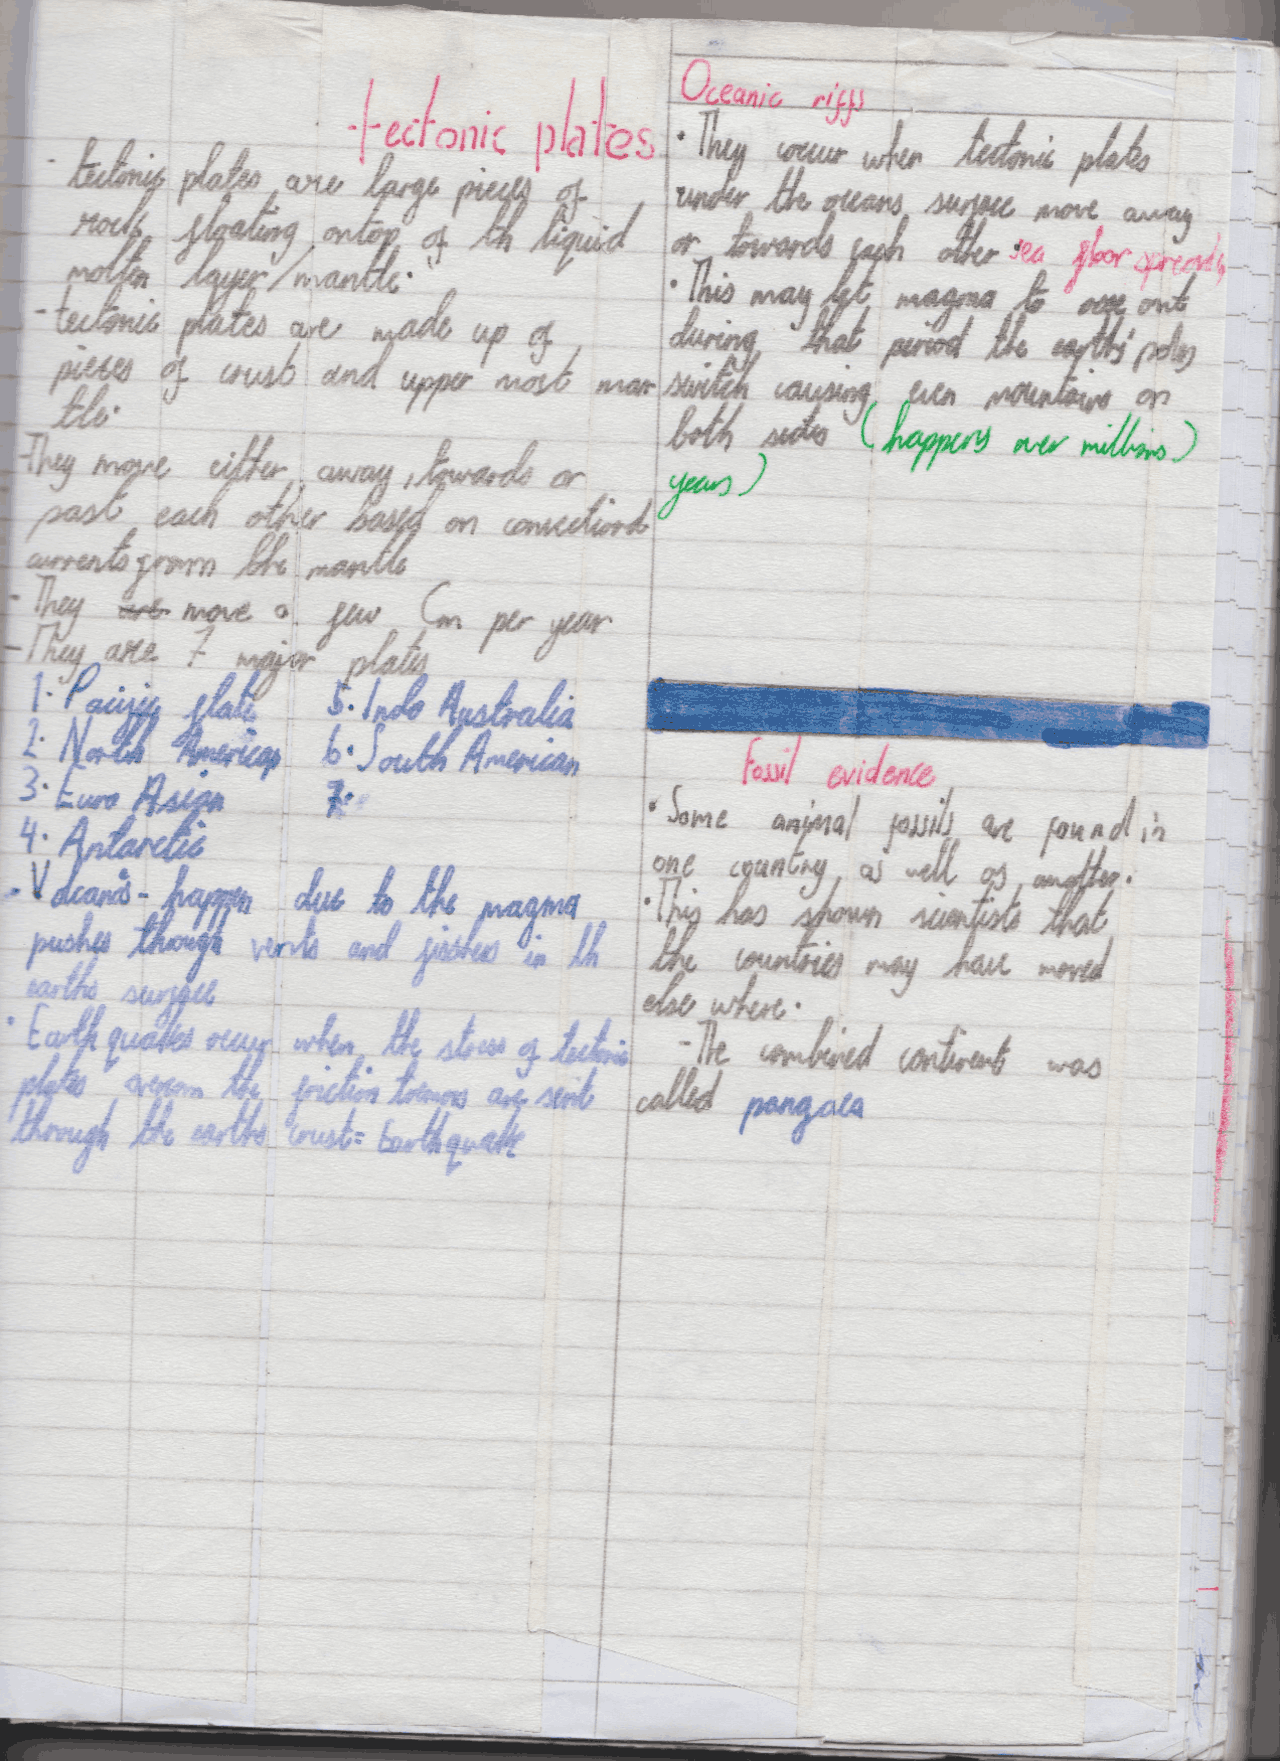 tectonic plates
- tectonic plates are large pieces of
rock floating ontop of th liquid
molten layer/mantle.
- tectonic plates are made up of
pieces of crust and upper most man
tle.
-They move either away, towards or
past each other based on convectiond
currents from the mantle
- They are move a few Cm per year
- They are 7 major plates
1. Pacific plate
2. North American
3. Euro Asian
4. Antarctic
5. Indo Australia
6. South American
7.
• Volcano's - happen due to the magma
pushes through vents and fissures in th
earths surface
• Earth quakes occur when the stress of tectonic
plates overcom the friction tremors are sent
through the earths crust = Earthquake
Oceanic riffs
• They occur when tectonic plates
under the oceans surface move away
or towards each other sea floor spreading
• This may let magma to ooze out
during that period the earths' poles
switch causing even mountains on
both sides (happens over millions)
years)
Fossil evidence
• Some animal fossils are found in
one country as well as another.
• This has shown scientists that
the countries may have moved
else where.
- The combined continent was
called pangaea